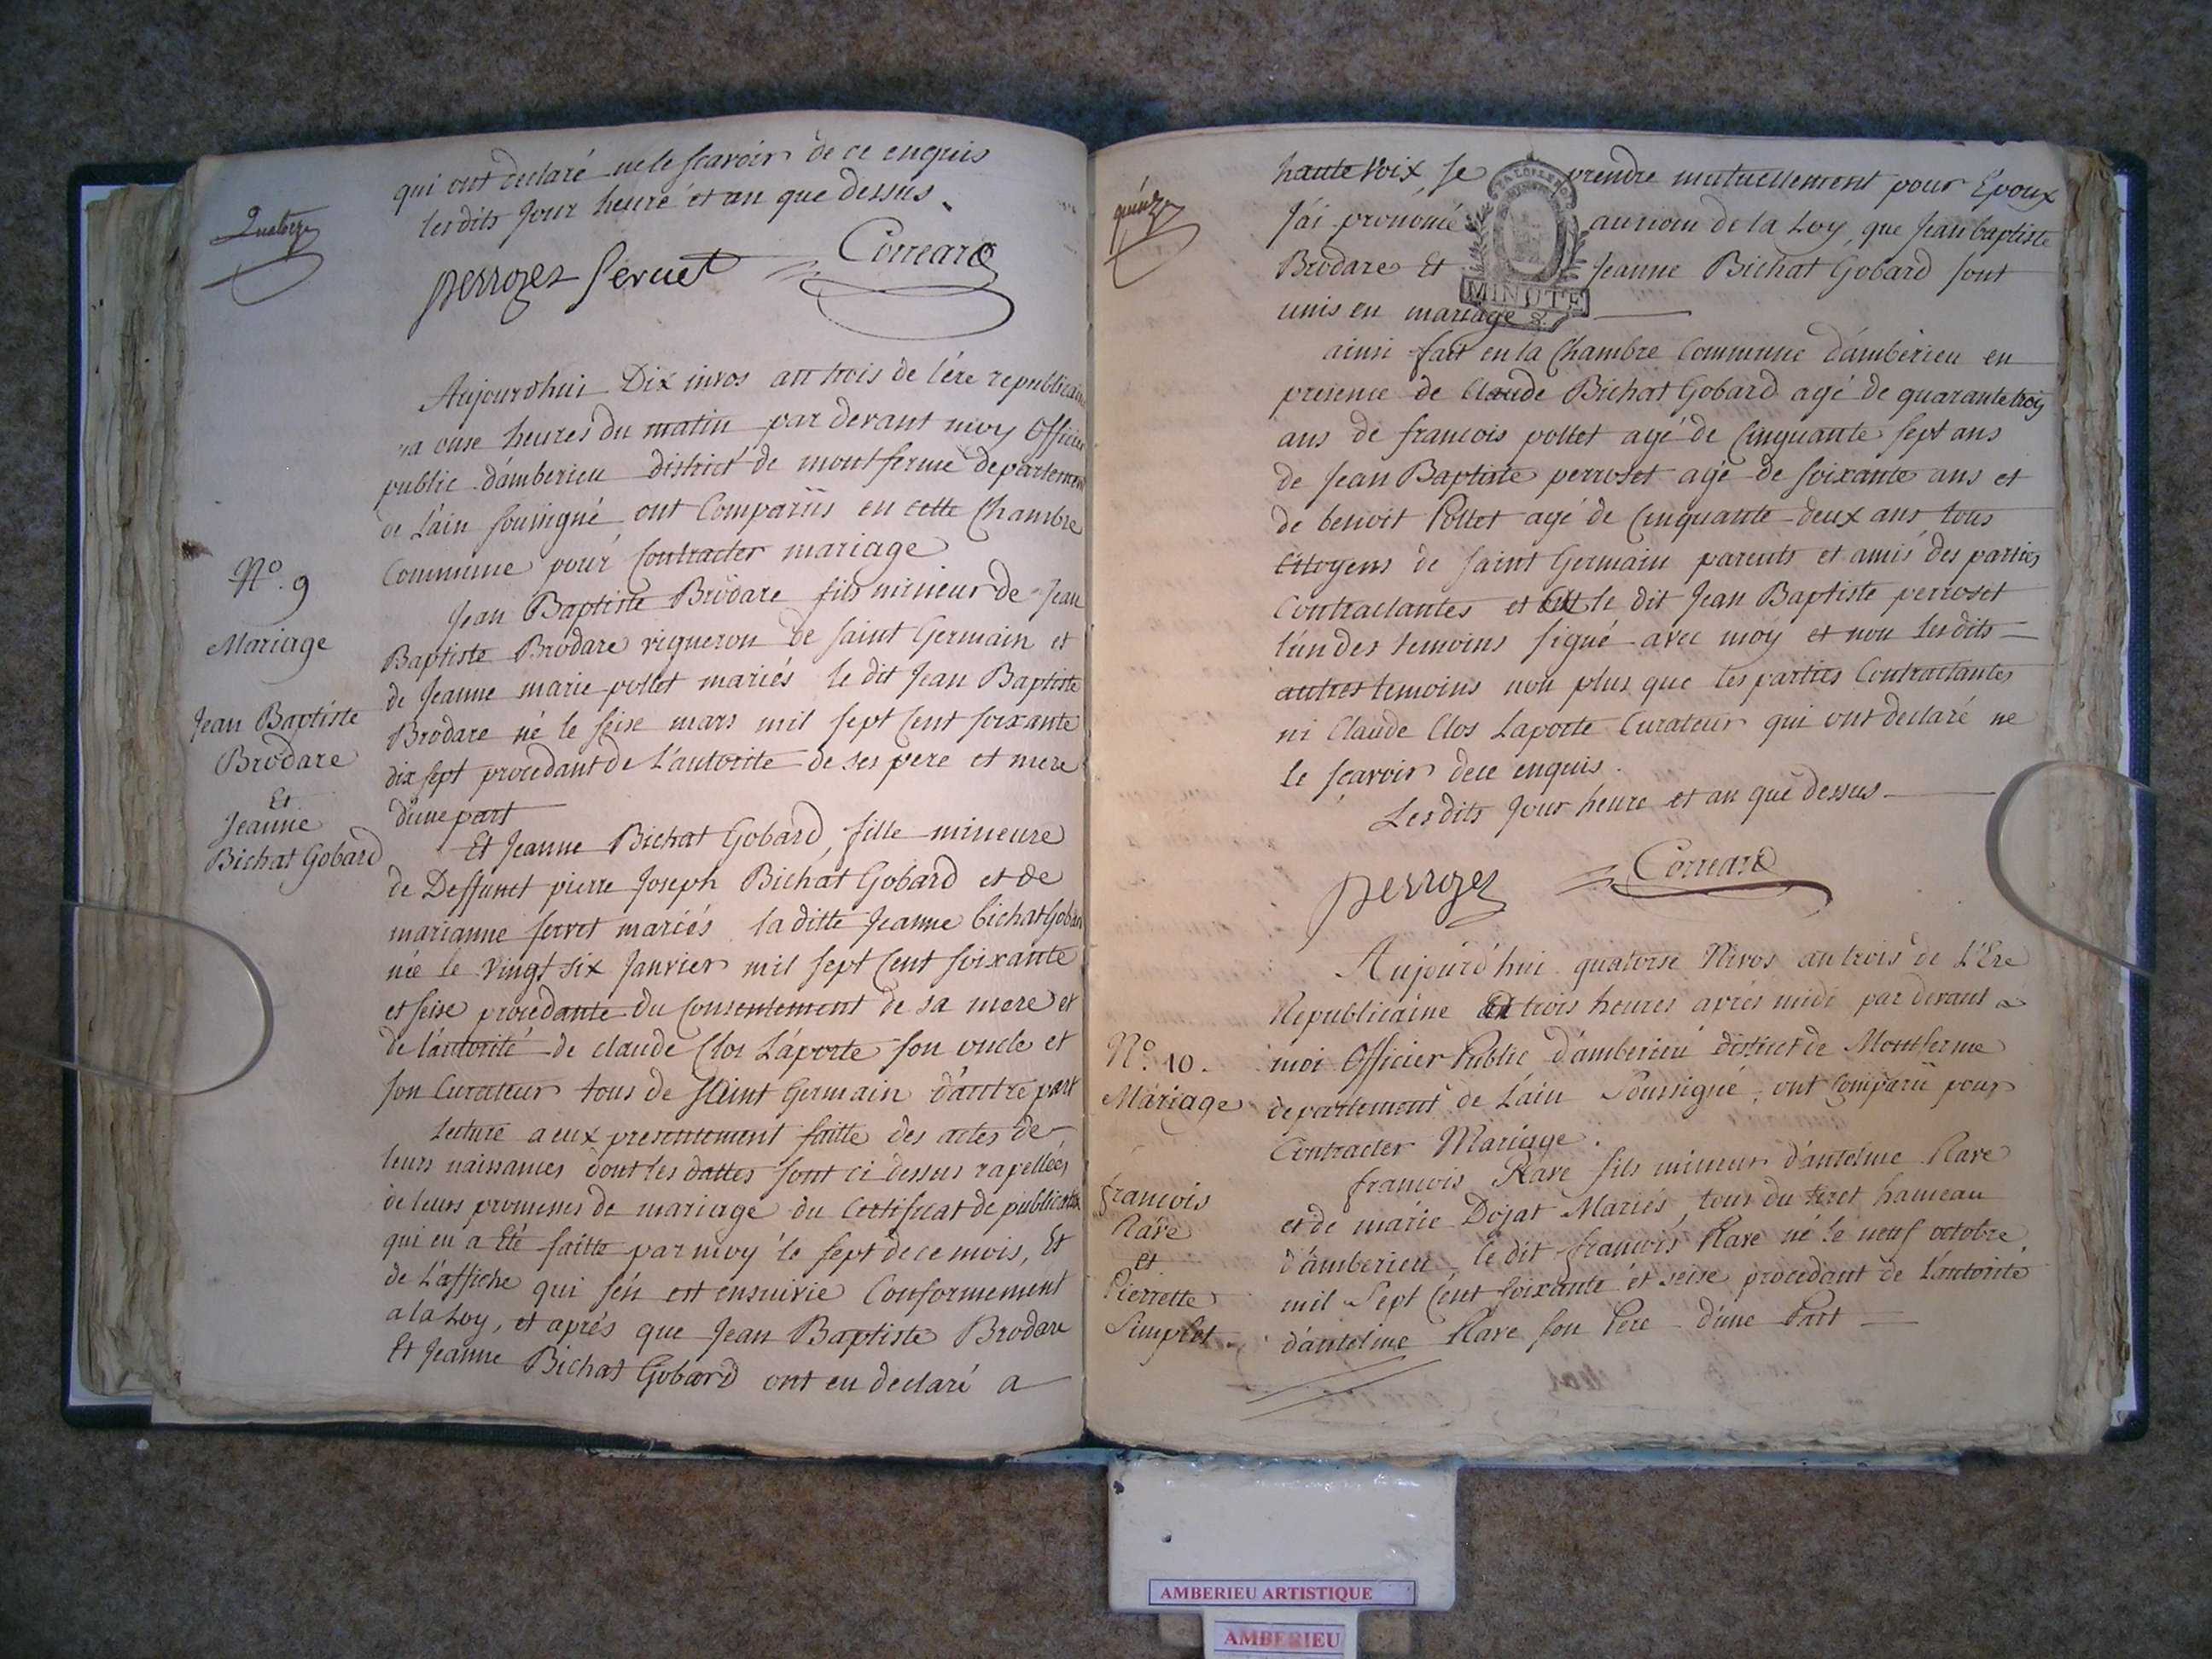 Quatorze
qui ont declaré ne le scavoir de ce enquis
les dits jour heure et an que dessus.
perrozet Servet Correard
Aujourdhui Dix nivos an trois de l'ére republicaine
a onse heures du matin par devant moy Officier
public d'amberieu district de montferme departement
de L'ain soussigné ont Comparüs en cette Chambre
Commune pour Contracter mariage
N.º 9
Mariage
Jean Baptiste
Brodare
Et
Jeanne
Bichat Gobard
Jean Baptiste Brodare fils mineur de Jean
Baptiste Brodare vigneron de saint Germain et
de Jeanne marie pollet mariés le dit Jean Baptiste
Brodare né le seise mars mil sept Cent soixante
dix sept procedant de L'autorite de ses pere et mere
d'une part
Et Jeanne Bichat Gobard, fille mineure
de Deffunct pierre Joseph Bichat Gobard et de
marianne servet mariés la ditte Jeanne bichat Gobard
née le vingt six Janvier mil sept Cent soixante
et seise procedante du Consentement de sa mere et
de l'autorité de claude Clos Laporte son oncle et
son Curateur tous de saint Germain d'autre part
Lecture a eux presentement faitte des actes de
leurs naissances dont les dattes sont ci dessus rapellées
de leurs promesses de mariage du Certificat de publication
qui en a Eté faitte par moy le sept de ce mois, Et
de L'affiche qui s'en est ensuivie Conformement
a la Loy, et aprés que Jean Baptiste Brodare
Et Jeanne Bichat Gobard ont eu declaré a
quinze
haute voix se prendre mutuellement pour Epoux
J'ai prononcé au nom de la Loy, que Jean baptiste
Brodare Et Jeanne Bichat Gobard sont
unis en mariage
MINUTE
ainsi fait en la Chambre Commune d'amberieu en
presence de Claude Bichat Gobard agé de quarante trois
ans de francois pollet agé de Cinquante sept ans
de Jean Baptiste perroset agé de soixante ans et
de benoit Pollet agé de Cinquante deux ans tous
Citoyens de saint Germain parents et amis des parties
Contractantes et le dit Jean Baptiste perroset
l'un des temoins signé avec moy et non les dits
autres temoins non plus que les parties Contractantes
ni Claude Clos Laporte Curateur qui ont declaré ne
le scavoir de ce enquis.
Les dits jour heure et an que dessus
perrozet Correard
Aujourd'hui quatorse Nivos an trois de L'Ere
Republicaine trois heures aprés midi par devant
N.º 10.
Mariage
moi Officier Public d'amberieu district de Montferme
departement de L'ain Soussigné, ont Comparü pour
Contracter Mariage.
francois
Rave
et
Pierrette
Simplet
francois Rave fils mineur d'antelme Rave
et de marie Dojat Mariés, tous du tiret hameau
d'amberieu le dit francois Rave né le neuf octobre
mil Sept Cent soixante et seise procedant de L'autorité
d'antelme Rave son Pere d'une Part
AMBERIEU ARTISTIQUE
AMBERIEU